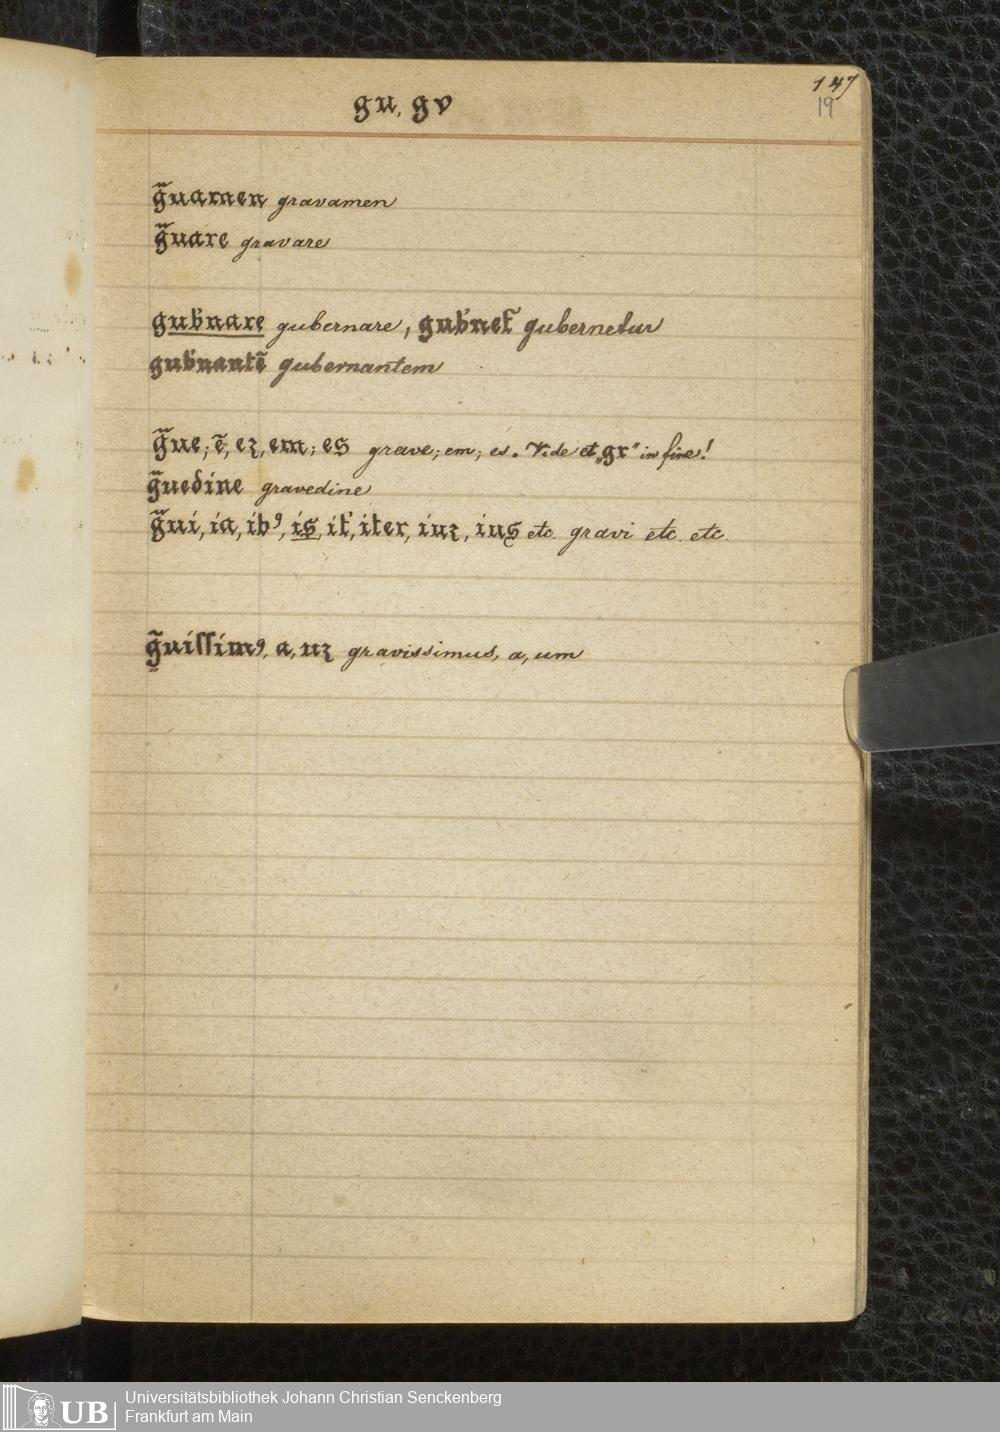 147
19
gu, gv
g̃uamen gravamen
g̃uare gravare
gub'nare gubernare, gub'net᷑ gubernetur
gub'nantē gubernantem
g̃ue; ē, eꝫ, em; es grave; em; es. Vide et „gr“ in fine!
g̃uedine gravedine
g̃ui, ia, ibꝰ, is, it', iter, iuꝫ, ius etc. gravi etc. etc.
g̃uissimꝰ, a, uꝫ gravissimus, a, um
Universitätsbibliothek Johann Christian Senckenberg
Frankfurt am Main
UB